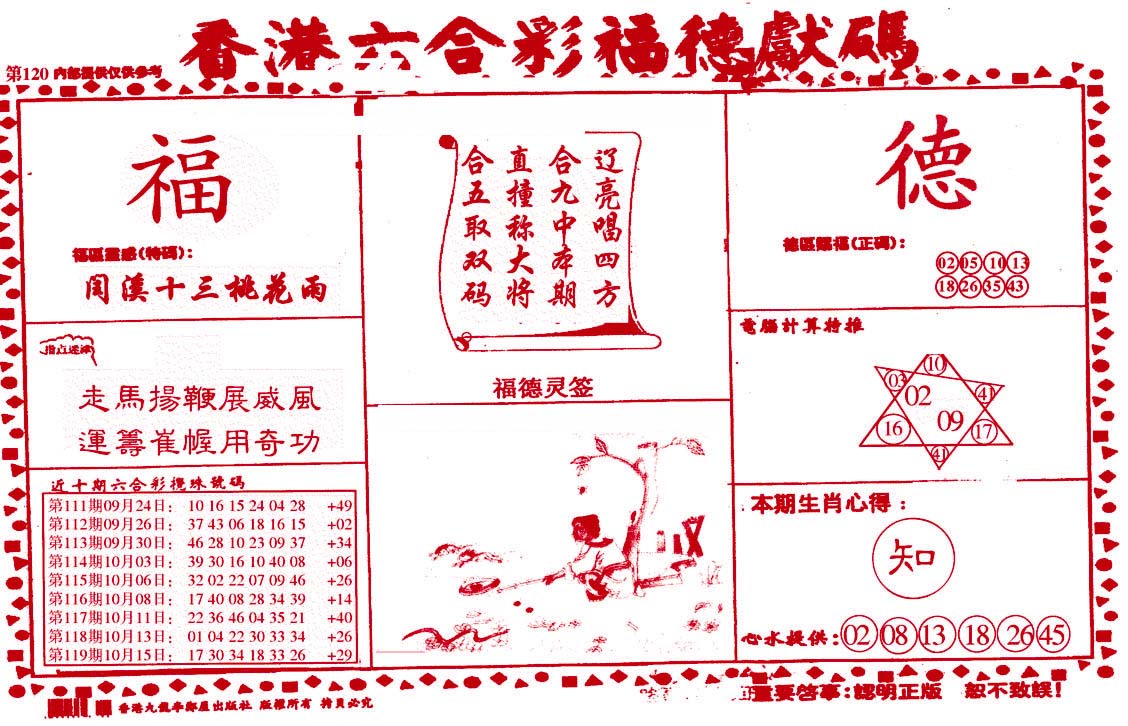 香港六合彩福德獻碼
第120 内部提供仅供参考
福
福區靈感(特碼):
閏溪十三桃花雨
指点迷津
走馬揚鞭展威風
運籌崔幄用奇功
近十期六合彩攪珠號碼
第111期09月24日: 10 16 15 24 04 28 +49
第112期09月26日: 37 43 06 18 16 15 +02
第113期09月30日: 46 28 10 23 09 37 +34
第114期10月03日: 39 30 16 10 40 08 +06
第115期10月06日: 32 02 22 07 09 46 +26
第116期10月08日: 17 40 08 28 34 39 +14
第117期10月11日: 22 36 46 04 35 21 +40
第118期10月13日: 01 04 22 30 33 34 +26
第119期10月15日: 17 30 34 18 33 26 +29
辽亮唱四方
合九中本期
直撞称大将
合五取双码
福德灵签
德
德區賜福(正碼):
02 05 10 13
18 26 35 43
電腦計算特推
10
03 02 41
16 09 17
41
本期生肖心得:
知
心水提供: 02 08 13 18 26 45
重要啓事:認明正版 恕不致誤!
香港九龍 出版社 版權所有 拷貝必究